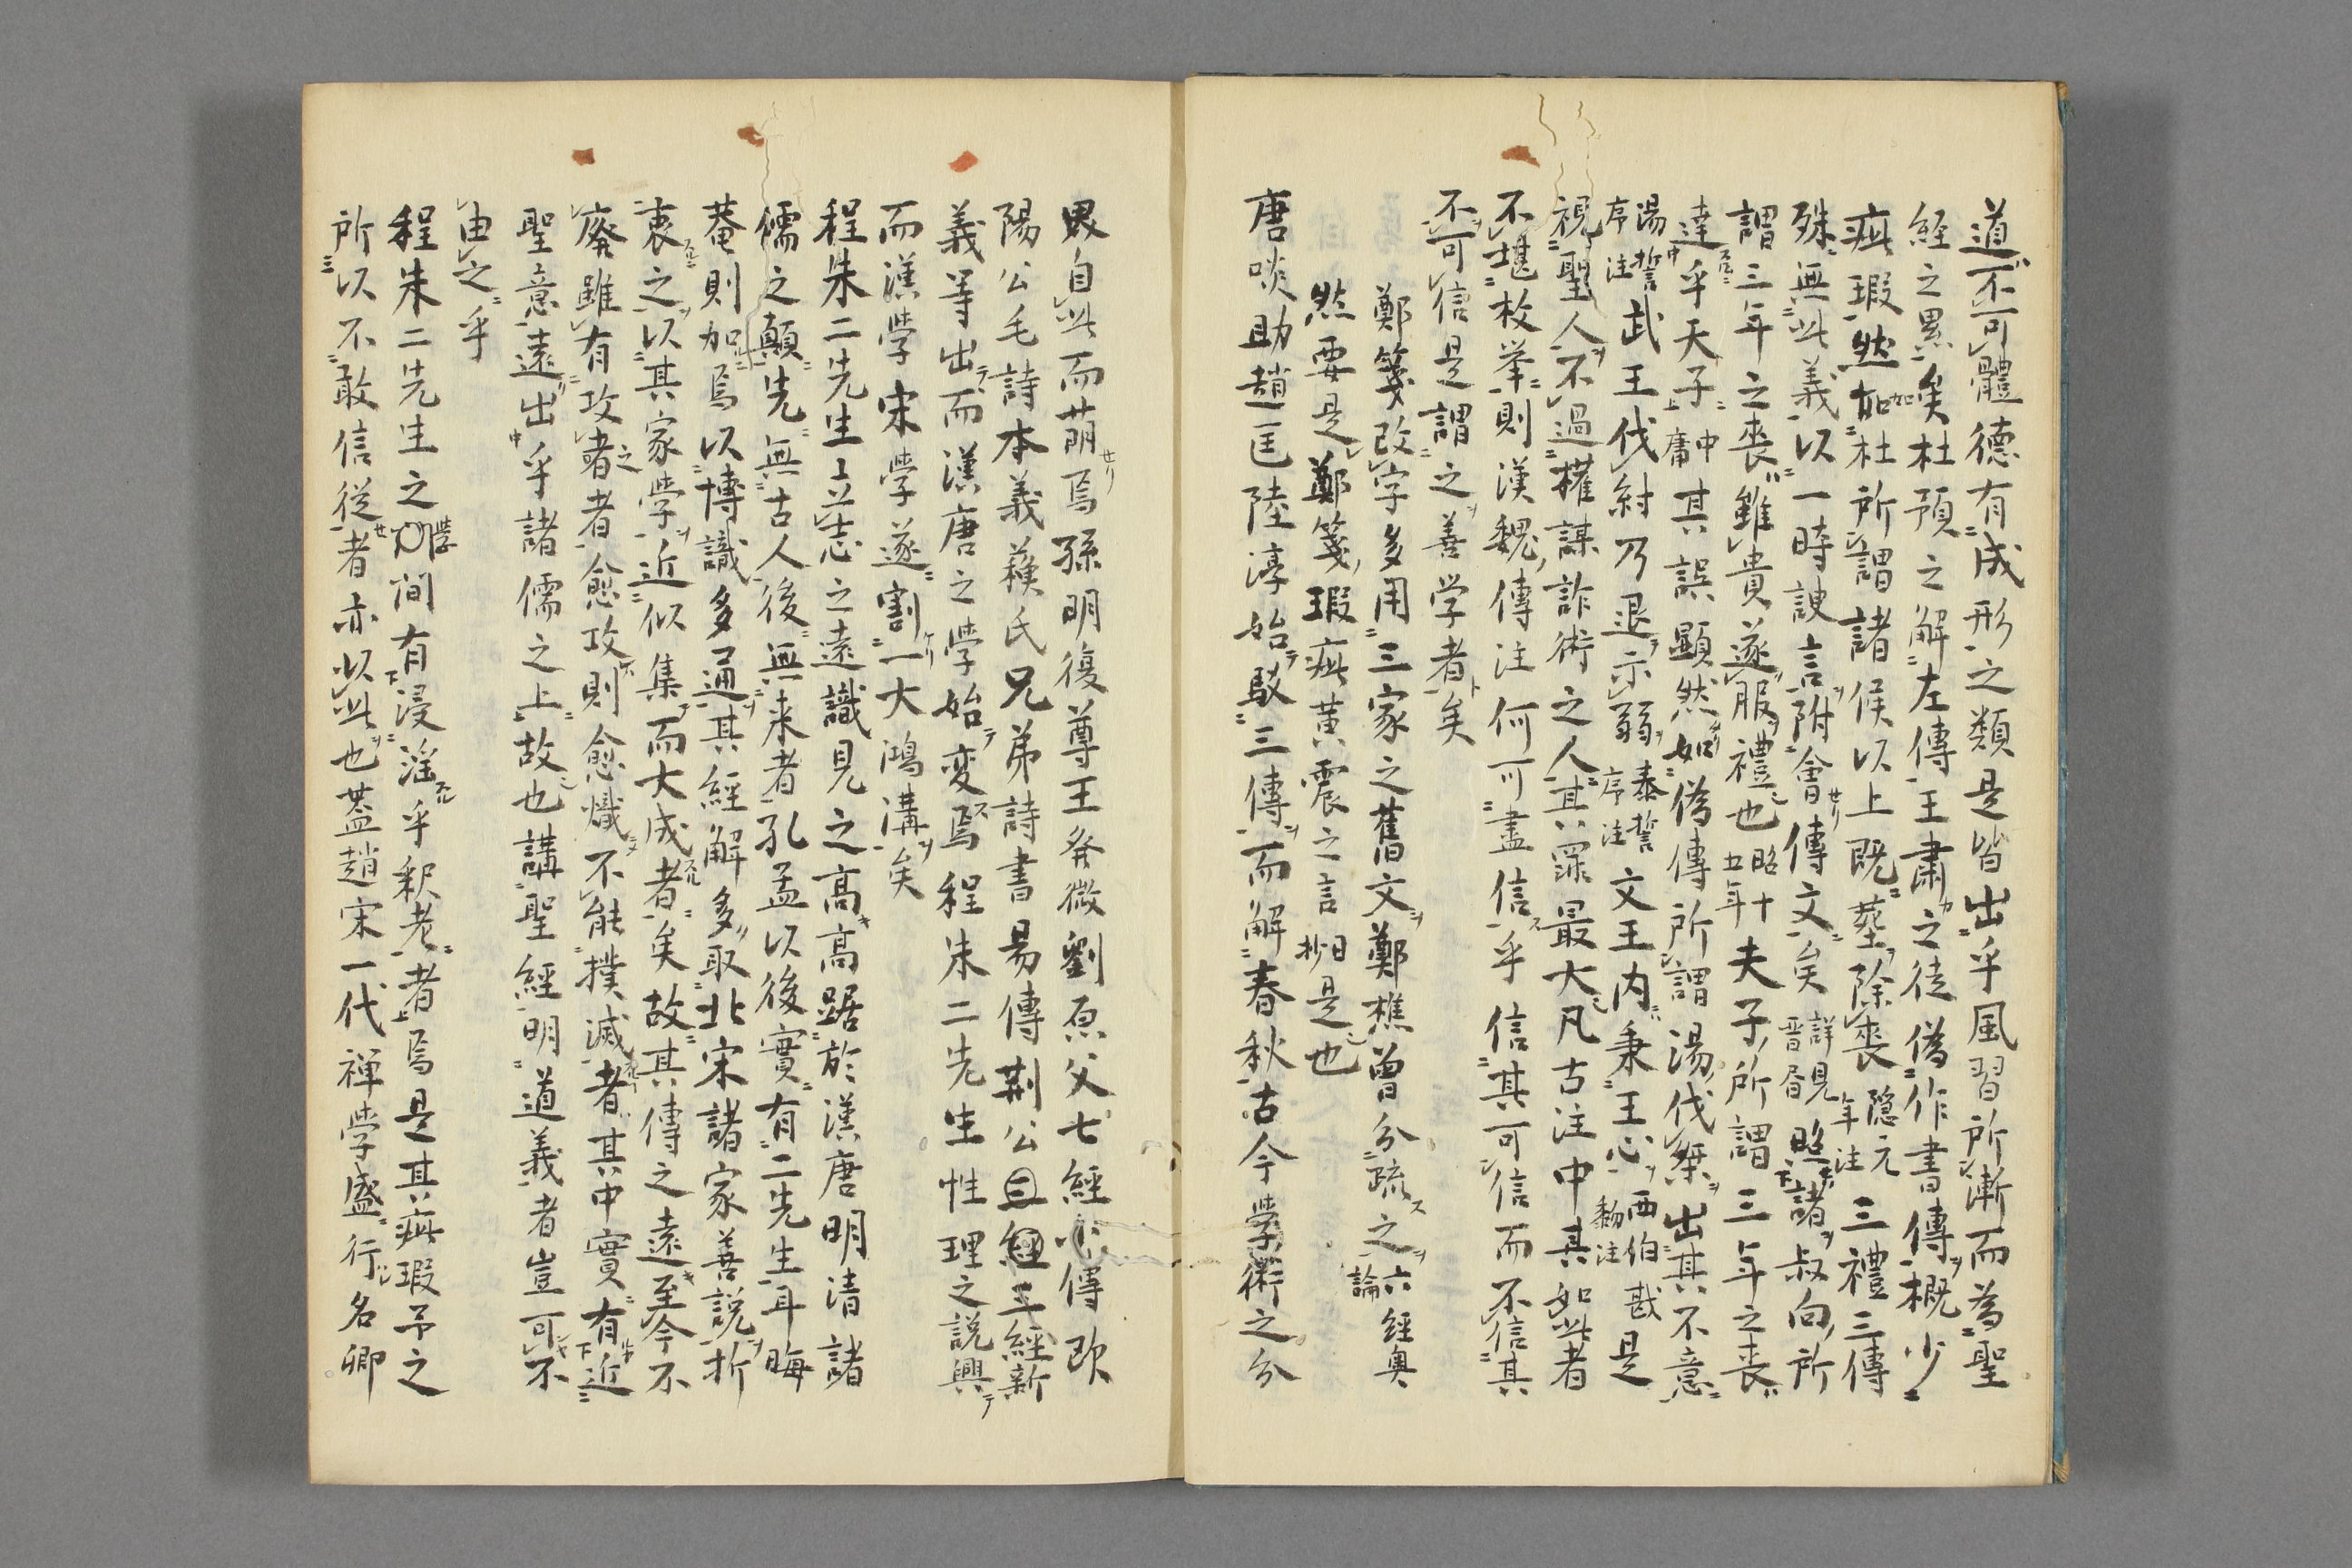 道不可體德有成形之類是皆出乎風習所漸而為聖
経之累矣杜預之解左傳王肅之徒偽作書傳概少
疵瑕然如杜所謂諸侯以上既葬除喪隠元年注三禮三傳
殊無此義以一時諛言附會傳文矣詳見晋届照諸叔向所
謂三年之喪雖貴遂服禮也昭十五年夫子所謂三年之喪
達乎天子中庸其誤顯然如偽傳所謂湯伐桀出其不意
湯誓序注武王伐紂乃退示弱泰誓序注文王内秉王心西伯戡黎注是
視聖人不過権謀詐術之人其罪最大凡古注中其如此者
不堪枚挙則漢魏傳注何可盡信乎信其可信而不信其
不可信是謂之善学者矣
鄭箋改字多用三家之舊文鄭樵曽分疏之六経奥論
然要是鄭箋瑕疵黄震之言日抄是也
唐啖助趙匡陸淳始駁三傳而解春秋古今學術之分
異自此而萠焉孫明復尊王発微劉原父七經小傳欧
陽公毛詩本義蘓氏兄弟詩書易傳荆公三経新
義等出而漢唐之學始変焉程朱二先生性理之説興
而漢學宋學遂割一大鴻溝矣
程朱二先生立志之遠識見之高高踞於漢唐明清諸
儒之顛先無古人後無来者孔孟以後實有二先生耳晦
菴則加焉以博識多通其經解多取北宋諸家善説折
衷之以其家學近似集而大成者矣故其傳之遠至今不
廃雖有攻之者愈攻則愈熾不能撲滅者其中實有近
聖意遠出乎諸儒之上故也講聖經明道義者豈可不
由之乎
程朱二先生之學間有浸淫乎釈老者焉是其疵瑕予之
所以不敢信従者亦以此也盖趙宋一代禅學盛行名卿